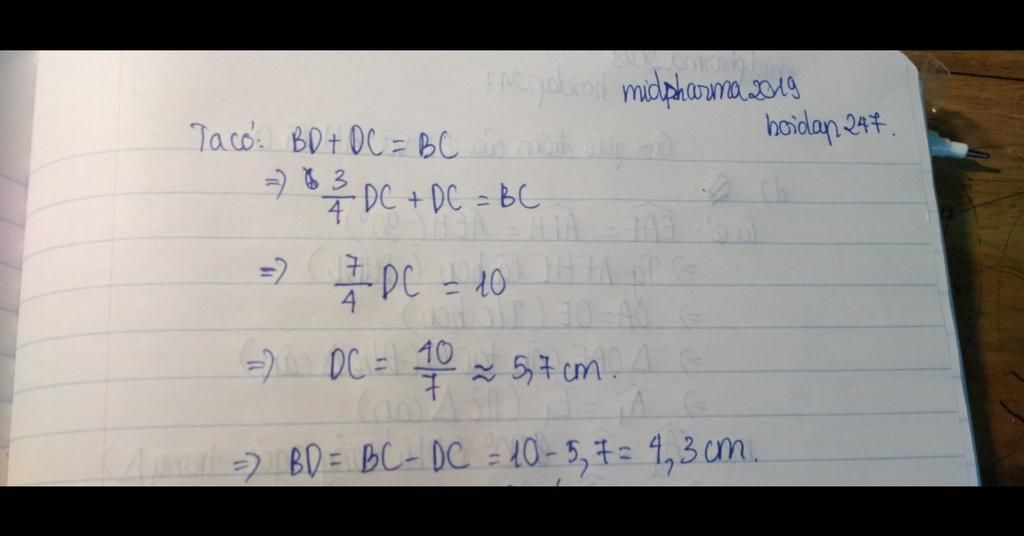 midpharma2019
hoidap247.
Ta có: BD + DC = BC
=> 3/4 DC + DC = BC
=> 7/4 DC = 10
=> DC = 40/7 ≈ 5,7 cm.
=> BD = BC - DC = 10 - 5,7 = 4,3 cm.